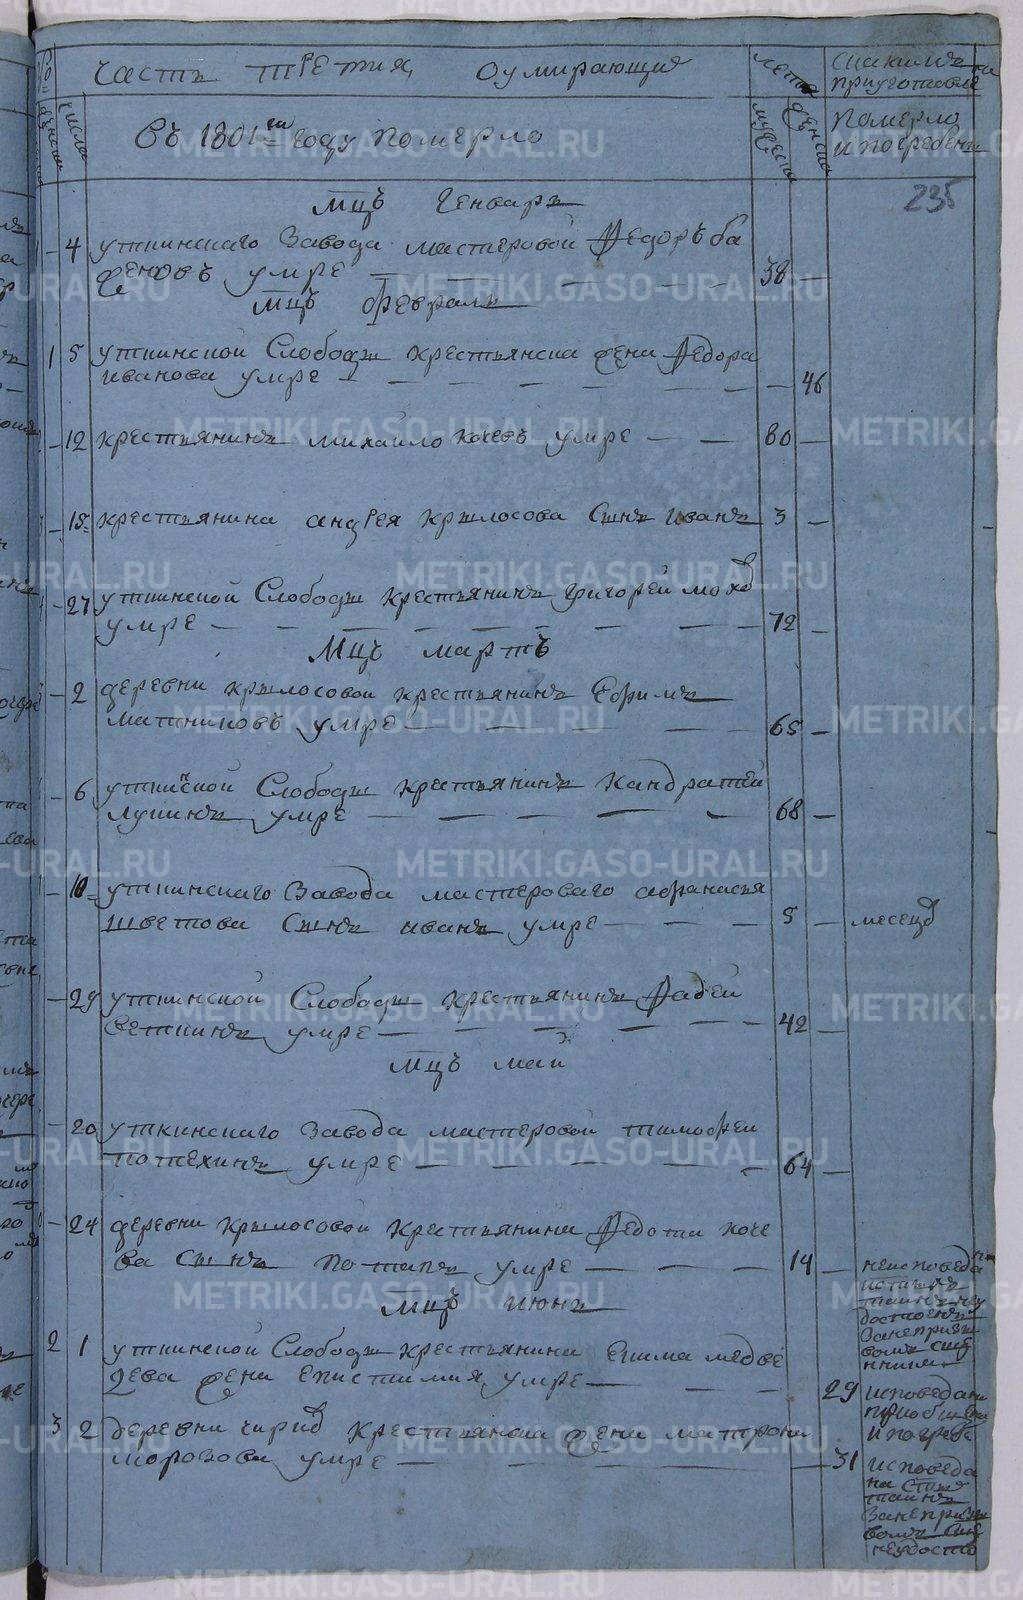 часть третия, оумирающия
лета
мужеска
женска
числа
женска
въ 1801м году померло
померло
и погребены
235
мцъ генварь
4 уткинскаго завода мастеровой Федоръ ба
женовъ умре — 38 —
мцъ февраль
1 5 уткинской слободы крестьянска жена Федора
иванова умре — 46
12 крестьянинъ михаило кочевъ умре — 80 —
15 крестьянина андрея крылосова сынъ иванъ 3 —
27 уткинской слободы крестьянинъ григорей
умре — 72 —
мцъ мартъ
2 деревни крылосовой крестьянинъ Ефимъ
умре — 65 —
6 уткинской слободы крестьянинъ кандратей
лупинъ умре — 68 —
10 уткинскаго завода мастероваго афанасья
шветова сынъ иванъ умре — 5 — месецо
29 уткинской слободы крестьянинъ Фадей
веткинъ умре — 42 —
мцъ маи
20 уткинскаго завода мастеровой тимофеи
потехинъ умре — 64 —
24 деревни крылосовой крестьянина Федота коче
ва сынъ потапъ умре — 14 —
мцъ июнь
2 1 уткинской слободы крестьянина екима медве
дева жена епистимия умре — 29
исповедана
приобщена
и погребе
3 2 деревни крестьянска жена матрона
морозова умре — 31
исповеда
на
таинъ
METRIKI.GASO-URAL.RU